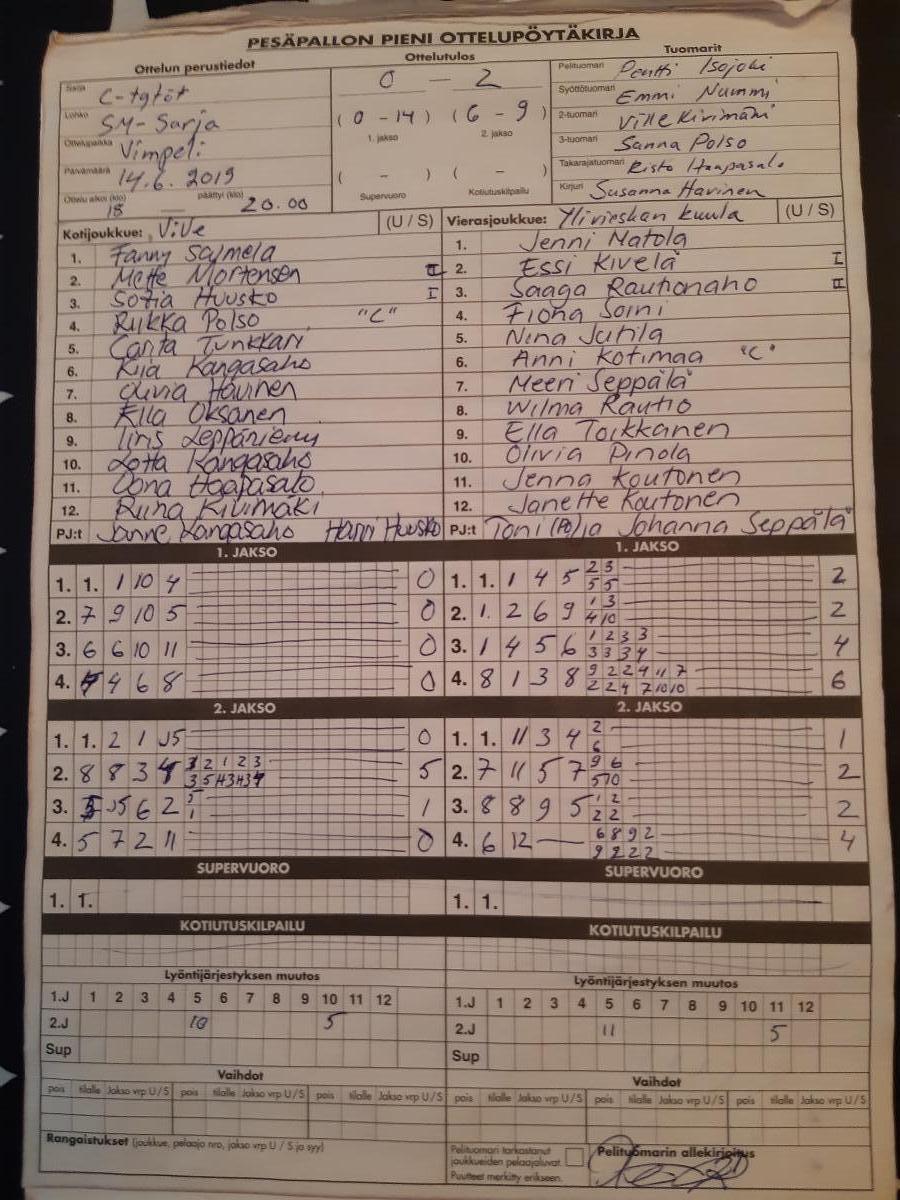 PESÄPALLON PIENI OTTELUPÖYTÄKIRJA
Ottelun perustiedot
Ottelutulos
Tuomarit
Sarja C-tytöt
Lohko SM-Sarja
Ottelupaikka Vimpeli
Päivämäärä 14.6.2019
Ottelu alkoi (klo) 18 — päättyi (klo) 20.00
0 — 2
(0 - 14) (6 - 9)
1. jakso 2. jakso
( - ) ( - )
Supervuoro Kotiutuskilpailu
Pelituomari Pentti Isojoki
Syöttötuomari Emmi Nummi
2-tuomari Ville Kivimäki
3-tuomari Sanna Polso
Takarajatuomari Risto Haapasalo
Kirjuri Susanna Havinen
Kotijoukkue: ViVe (U / S)
1. Fanny Salmela
2. Mette Mortensen II
3. Sofia Huusko I
4. Riikka Polso "C"
5. Carita Tunkkari
6. Kiia Kangasaho
7. Olivia Havinen
8. Ella Oksanen
9. Iiris Leppäniemi
10. Lotta Kangasaho
11. Oona Haapasalo
12. Riina Kivimäki
PJ:t Janne Kangasaho Harri Huusko
Vierasjoukkue: Ylivieskan kuula (U / S)
1. Jenni Matola
2. Essi Kivelä I
3. Saaga Rautionaho II
4. Fiona Soini
5. Nina Jutila
6. Anni Kotimaa "C"
7. Meeri Seppälä
8. Wilma Rautio
9. Ella Toikkanen
10. Olivia Pinola
11. Jenna Koutonen
12. Janette Koutonen
PJ:t Toni Johanna Seppälä
1. JAKSO
1. 1. 1 10 4 0
2. 7 9 10 5 0
3. 6 6 10 11 0
4. 4 4 6 8 0
1. JAKSO
1. 1. 1 4 5 2 3 2
5 5
2. 1. 2 6 9 1 3 2
4 10
3. 1 4 5 6 1 2 3 3 4
3 3 3 4
4. 8 1 3 8 9 2 2 4 11 7 6
2 2 4 7 10 10
2. JAKSO
1. 1. 2 1 J5 0
2. 8 8 3 4 3 2 1 2 3 5
3. 5 J5 6 2 1
4. 5 7 2 11 0
2. JAKSO
1. 1. 11 3 4 2 1
6
2. 7 11 5 7 9 6 2
5 10
3. 8 8 9 5 1 2 2
2 2
4. 6 12 — 6 8 9 2 4
9 2 2 2
SUPERVUORO
1. 1.
SUPERVUORO
1. 1.
KOTIUTUSKILPAILU
KOTIUTUSKILPAILU
Lyöntijärjestyksen muutos
1.J 1 2 3 4 5 6 7 8 9 10 11 12
2.J 10 5
Sup
Lyöntijärjestyksen muutos
1.J 1 2 3 4 5 6 7 8 9 10 11 12
2.J 11 5
Sup
Vaihdot
pois tilalle Jakso vrp U / S pois tilalle Jakso vrp U / S pois tilalle Jakso vrp U / S
Vaihdot
pois tilalle Jakso vrp U / S pois tilalle Jakso vrp U / S pois tilalle Jakso vrp U / S
Rangaistukset (joukkue, pelaaja nro, jakso vrp U / S ja syy)
Pelituomari tarkastanut
joukkueiden pelaajaluvat.
Puutteet merkitty erikseen.
Pelituomarin allekirjoitus